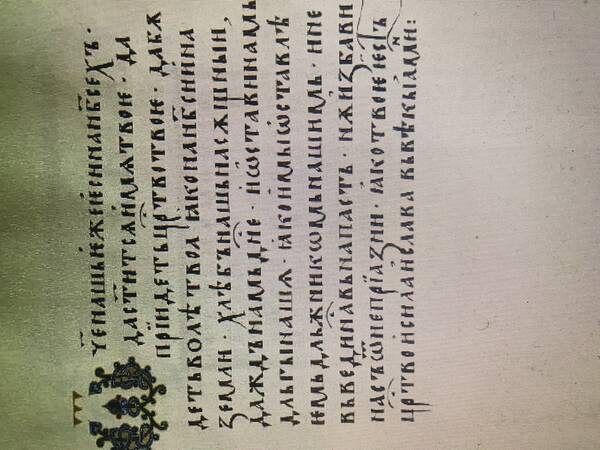 ч҃е нашь иже ѥси на нб҃сехъ · 
да ст҃итсѧ имѧ твоѥ · да
прїидеть црⷭ҇тво твоѥ · да бѫ
деть волѣ твоꙗ ꙗко на нб҃си и на
земли · хлѣбъ нашь насѫщныи,
даждь намь дн҃е · и ѡстави намь
дльгы нашѧ · ꙗко и мы ѡставлѣ
ѥмь дльжникѡмь нашимь · и не
вьведи нась вь напасть · нѫ избави
нась ѿ непрїазни · ꙗко твоѥ ѥсть
црⷭ҇тво и сила и слава вь вѣкы амин :